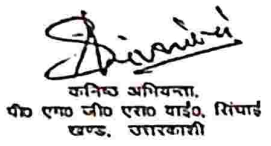 कनिष्ठ अभियन्ता,
पी० एम० जी० एस० वाई०, सिंचाई
खण्ड, उत्तरकाशी